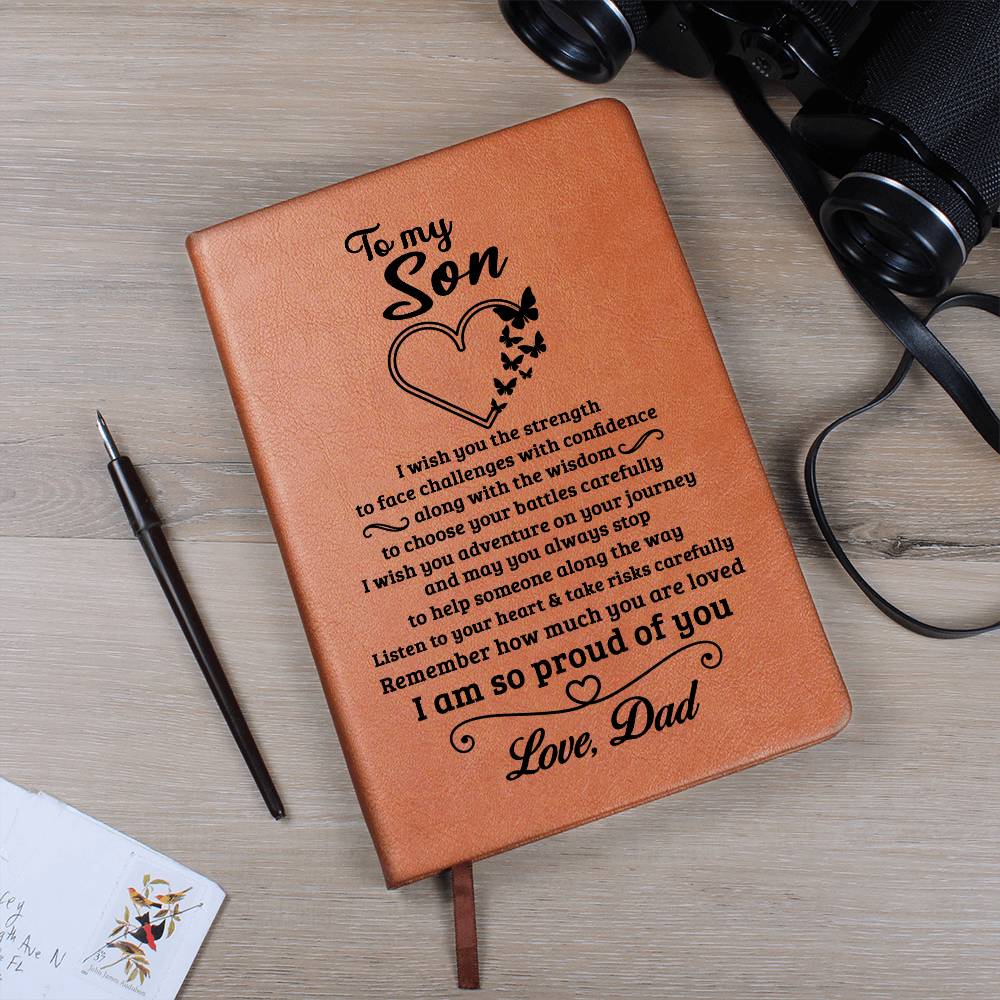 To my
Son
I wish you the strength
to face challenges with confidence
along with the wisdom
to choose your battles carefully
I wish you adventure on your journey
and may you always stop
to help someone along the way
Listen to your heart & take risks carefully
Remember how much you are loved
I am so proud of you
Love, Dad
Ave N
FL
37
John James Audubon